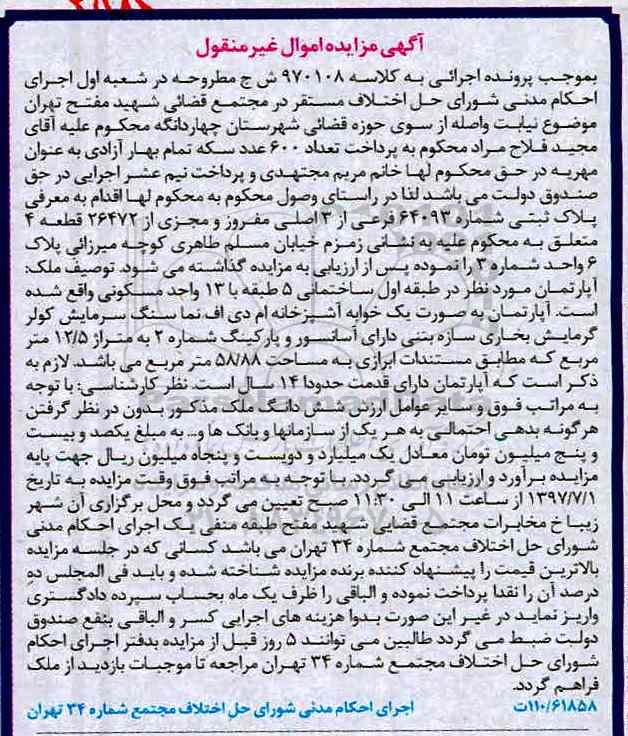 آگهی مزایده اموال غیر منقول
بموجب پرونده اجرائی به کلاسه ۹۷۰۱۰۸ ش ج مطروحه در شعبه اول اجرای
احکام مدنی شورای حل اختلاف مستقر در مجتمع قضائی شهید مفتح تهران
موضوع نیابت واصله از سوی حوزه قضائی شهرستان چهاردانگه محکوم علیه آقای
مجید فلاح مراد محکوم به پرداخت تعداد ۶۰۰ عدد سکه تمام بهار آزادی به عنوان
مهریه در حق محکوم لها خانم مریم مجتهدی و پرداخت نیم عشر اجرایی در حق
صندوق دولت می باشد لذا در راستای وصول محکوم به محکوم لها اقدام به معرفی
پلاک ثبتی شماره ۶۴۰۹۳ فرعی از ۳ اصلی مفروز و مجزی از ۲۶۴۷۲ قطعه ۴
متعلق به محکوم علیه به نشانی زمزم خیابان مسلم طاهری کوچه میرزائی پلاک
۶ واحد شماره ۳ را نموده پس از ارزیابی به مزایده گذاشته می شود. توصیف ملک:
آپارتمان مورد نظر در طبقه اول ساختمانی ۵ طبقه با ۱۳ واحد مسکونی واقع شده
است. آپارتمان به صورت یک خوابه آشپزخانه ام دی اف نما سنگ سرمایش کولر
گرمایش بخاری سازه بتنی دارای آسانسور و پارکینگ شماره ۲ به متراژ ۱۲/۵ متر
مربع که مطابق مستندات ابرازی به مساحت ۵۸/۸۸ متر مربع می باشد. لازم به
ذکر است که آپارتمان دارای قدمت حدودا ۱۴ سال است. نظر کارشناسی: با توجه
به مراتب فوق و سایر عوامل ارزش شش دانگ ملک مذکور بدون در نظر گرفتن
هرگونه بدهی احتمالی به هر یک از سازمانها و بانک ها و... به مبلغ یکصد و بیست
و پنج میلیون تومان معادل یک میلیارد و دویست و پنجاه میلیون ریال جهت پایه
مزایده برآورد و ارزیابی می گردد. با توجه به مراتب فوق وقت مزایده به تاریخ
۱۳۹۷/۷/۱ از ساعت ۱۱ الی ۱۱:۳۰ صبح تعیین می گردد و محل برگزاری آن شهر
زیبا خ مخابرات مجتمع قضایی شهید مفتح طبقه منفی یک اجرای احکام مدنی
شورای حل اختلاف مجتمع شماره ۳۴ تهران می باشد کسانی که در جلسه مزایده
بالاترین قیمت را پیشنهاد کننده برنده مزایده شناخته شده و باید فی المجلس ده
درصد آن را نقدا پرداخت نموده و الباقی را ظرف یک ماه بحساب سپرده دادگستری
واریز نماید در غیر این صورت بدوا هزینه های اجرایی کسر و الباقی بنفع صندوق
دولت ضبط می گردد طالبین می توانند ۵ روز قبل از مزایده بدفتر اجرای احکام
شورای حل اختلاف مجتمع شماره ۳۴ تهران مراجعه تا موجبات بازدید از ملک
فراهم گردد.
۱۱۰/۶۱۸۵۸ت اجرای احکام مدنی شورای حل اختلاف مجتمع شماره ۳۴ تهران